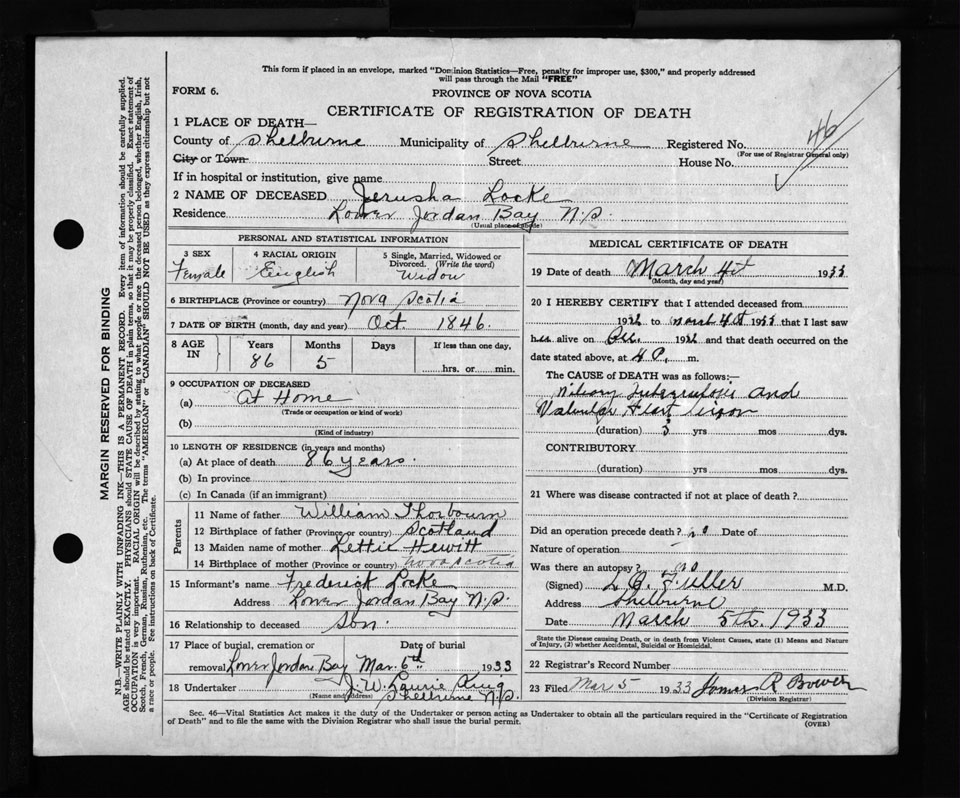 This form if placed in an envelope, marked "Dominion Statistics—Free, penalty for improper use, $300," and properly addressed
will pass through the Mail "FREE"
FORM 6.
PROVINCE OF NOVA SCOTIA
CERTIFICATE OF REGISTRATION OF DEATH
1 PLACE OF DEATH—
County of Shelburne Municipality of Shelburne Registered No. 46
(For use of Registrar General only)
City or Town Street House No.
If in hospital or institution, give name
2 NAME OF DECEASED Jerusha Locke
Residence Lower Jordan Bay N.S.
(Usual place of abode)
PERSONAL AND STATISTICAL INFORMATION
3 SEX Female
4 RACIAL ORIGIN English
5 Single, Married, Widowed or
Divorced. (Write the word)
Widow
6 BIRTHPLACE (Province or country) Nova Scotia
7 DATE OF BIRTH (month, day and year) Oct. 1846.
8 AGE IN
Years Months Days If less than one day,
86 5 hrs. or min.
9 OCCUPATION OF DECEASED
(a) At Home
(Trade or occupation or kind of work)
(b)
(Kind of industry)
10 LENGTH OF RESIDENCE (in years and months)
(a) At place of death 86 years.
(b) In province
(c) In Canada (if an immigrant)
Parents
11 Name of father William Thorbourn
12 Birthplace of father (Province or country) Scotland
13 Maiden name of mother Lettie Hewitt
14 Birthplace of mother (Province or country) Nova Scotia
15 Informant's name Frederick Locke
Address Lower Jordan Bay N.S.
16 Relationship to deceased Son.
17 Place of burial, cremation, or Date of burial
removal Lower Jordan Bay Mar. 6th 1933
18 Undertaker J. W. Laurie King
(Name and address) Shelburne N.S.
MEDICAL CERTIFICATE OF DEATH
19 Date of death March 4th 1933
(Month, day and year)
20 I HEREBY CERTIFY that I attended deceased from
to March 4th 1933 that I last saw
her alive on Dec. and that death occurred on the
date stated above, at 4 P. m.
The CAUSE of DEATH was as follows:—
Miliary Tuberculosis and
Valvular Heart lesion
(duration) 3 yrs mos dys.
CONTRIBUTORY
(duration) yrs mos dys.
21 Where was disease contracted if not at place of death?
Did an operation precede death? no Date of
Nature of operation
Was there an autopsy? no
(Signed) L. O. Fuller M.D.
Address Shelburne
Date March 5th. 1933
State the Disease causing Death, or in death from Violent Causes, state (1) Means and Nature
of Injury, (2) whether Accidental, Suicidal or Homicidal.
22 Registrar's Record Number
23 Filed Mar 5 1933 R Bower
(Division Registrar)
Sec. 46—Vital Statistics Act makes it the duty of the Undertaker or person acting as Undertaker to obtain all the particulars required in the "Certificate of Registration
of Death" and to file the same with the Division Registrar who shall issue the burial permit.
(OVER)
MARGIN RESERVED FOR BINDING
N.B.—WRITE PLAINLY WITH UNFADING INK—THIS IS A PERMANENT RECORD. Every item of information should be carefully supplied.
AGE should be stated EXACTLY. PHYSICIANS should STATE CAUSE OF DEATH in plain terms, so that it may be properly classified. Exact statement of
OCCUPATION is very important. RACIAL ORIGIN will be described by stating to what people or race the deceased person belonged, whether English, Irish,
Scotch, French, German, Russian, Ruthenian, etc. The terms "AMERICAN" or "CANADIAN" SHOULD NOT BE USED as they express citizenship but not
a race or people. See instructions on back of Certificate.